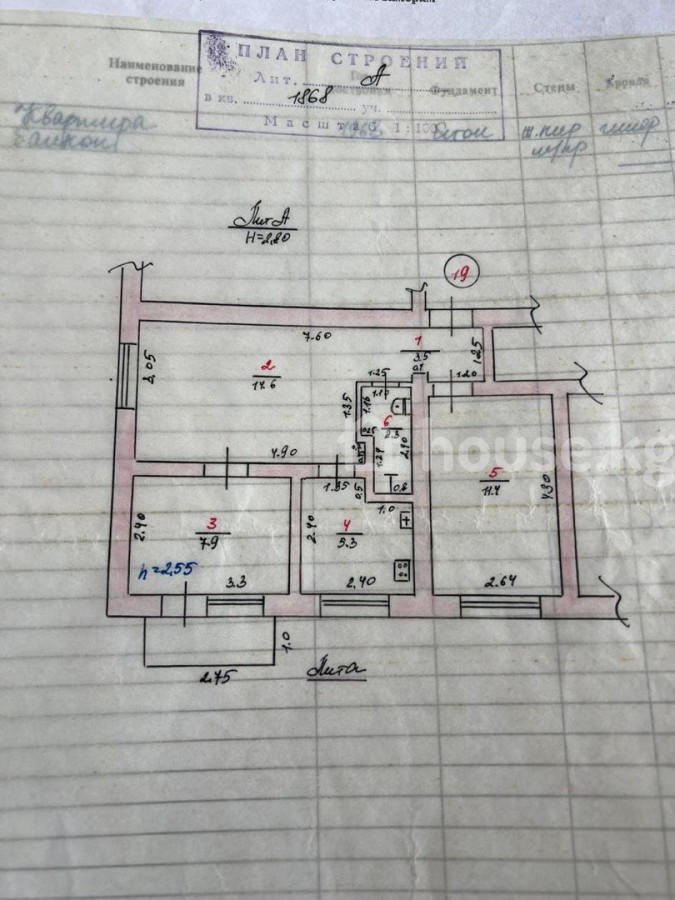 ПЛАН СТРОЕНИЙ
Наименование
строения
Лит. А
в кв. 1868 уч.
Фундамент
Стены
Кровля
Масштаб 1:100
Квартира
балкон
бетон
Лит А
H=2.80
19
7.60
1
3.5
1.25
1.20
2
17.6
3.05
1.25
1.10
1.35
6
2.10
1.27
0.8
4.90
1.35
0.5
1.0
5
11.4
4.30
2.64
house.kg
2.40
3
7.9
h=2.55
3.3
2.40
4
5.3
2.40
1.0
2.75
Лит А